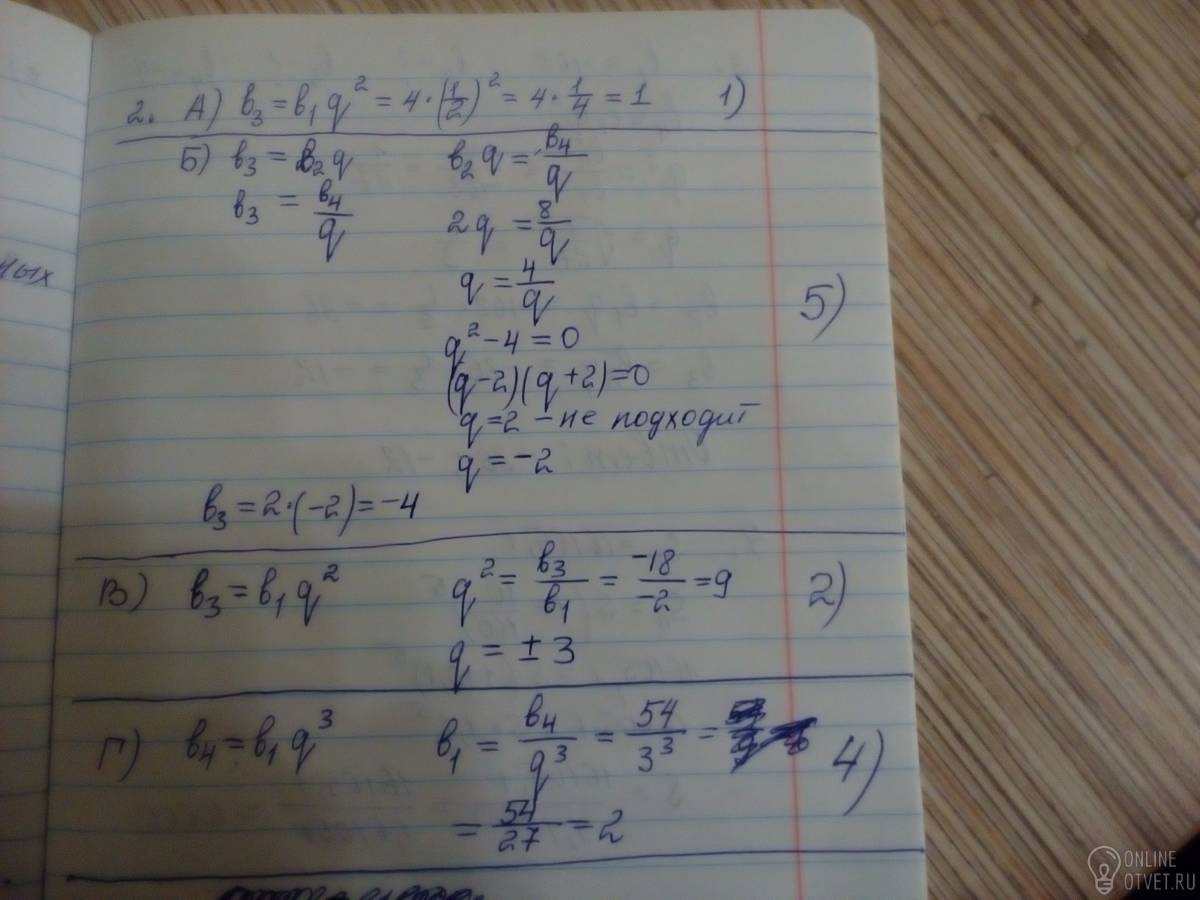 2. А) в₃ = в₁ q² = 4 · (1/2)² = 4 · 1/4 = 1 1)
Б) в₃ = в₂q в₂ q = в₄/q
в₃ = в₄/q 2q = 8/q
q = 4/q 5)
q² - 4 = 0
(q-2)(q+2)=0
q=2 - не подходит
q = -2
в₃ = 2·(-2) = -4
В) в₃ = в₁ q² q² = в₃/в₁ = -18/-2 = 9 2)
q = ± 3
Г) в₄ = в₁ q³ в₁ = в₄/q³ = 54/3³ = 4)
= 54/27 = 2
ных
ONLINE
OTVET.RU